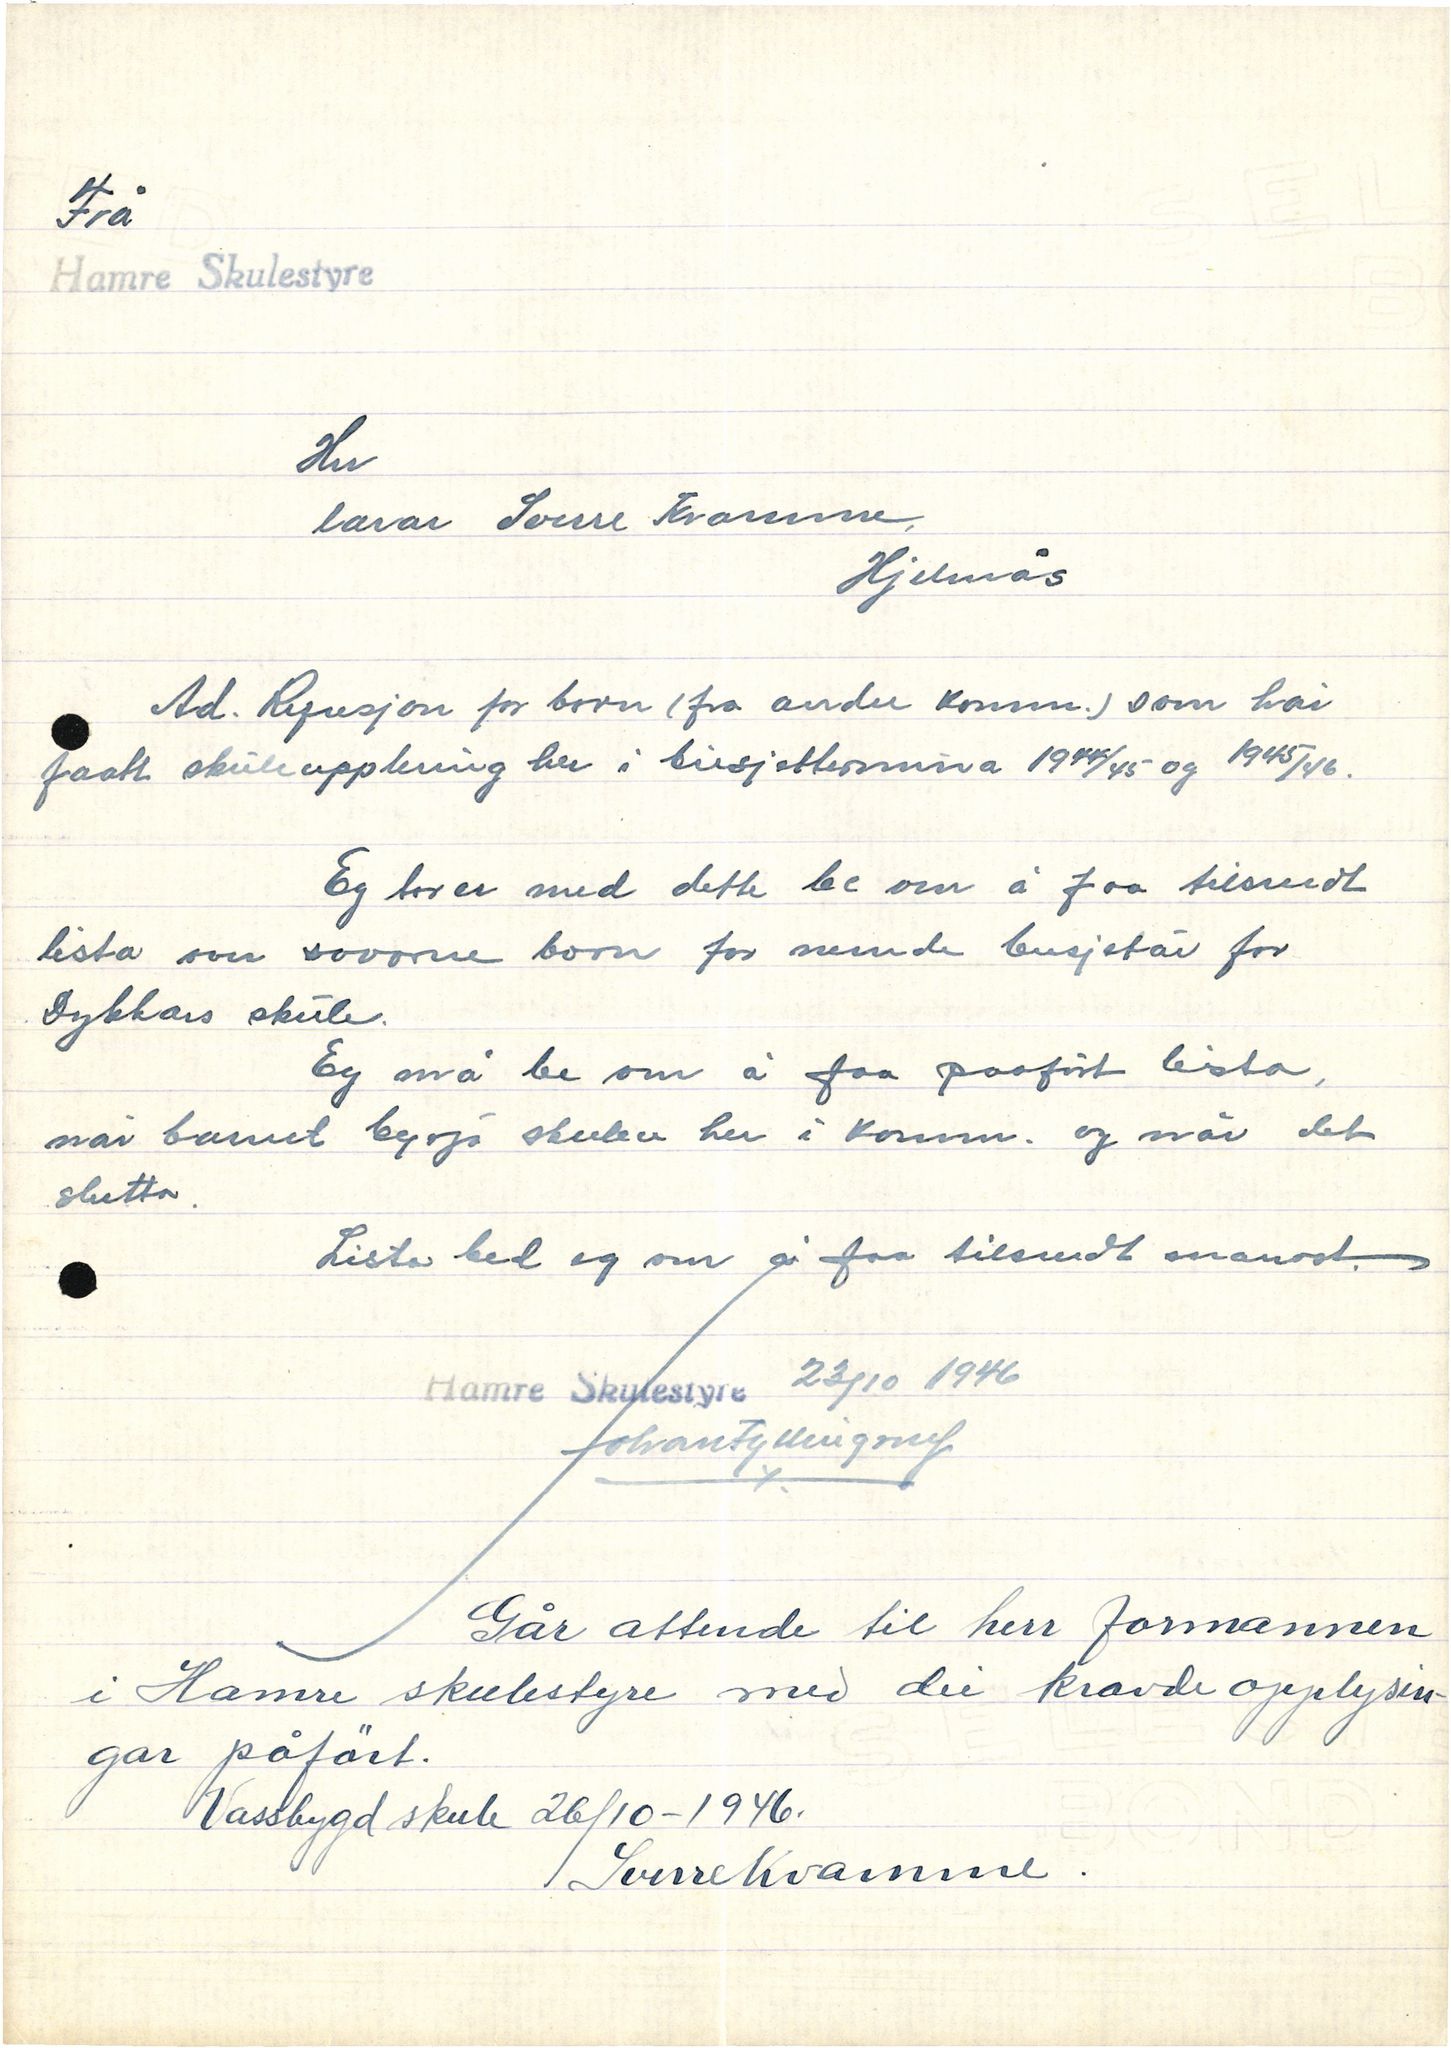 Frå
Hamre Skulestyre
Hr
lærar Sverre Kvamme,
Hjelmås
Ad. Refusjon for born (fra andre Komm.) som här
faatt skuleupplæring her i budsjettermina 1944/45 og 1945/46.
Eg torer med dette be om å faa tilsendt
lista over sovorne born for nemde busjetår for
Dykkars skule.
Eg må be om å faa paaført lista,
når barnet byrja skulen her i Komm. og når det
slutta.
Lista bed eg om å faa tilsendt snarast.
Hamre Skulestyre 23/10 1946
Johan Fyllingsnes
f.
Går attende til herr formannen
i Hamre skulestyre med dei kravde opplysin-
gar påført.
Vassbygd skule 26/10-1946.
Sverre Kvamme.